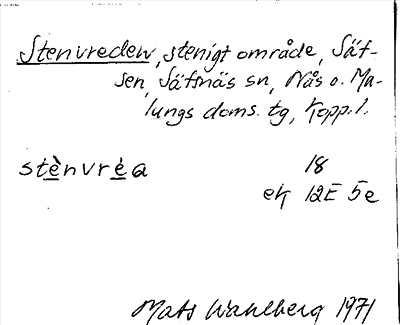 Stenvreden, stenigt område, Säf-
sen, Säfsnäs sn, Nås o. Ma-
lungs doms. tg, Kopp. l.
stènvréa 18
ek 12E 5e
Mats Wahlberg 1971